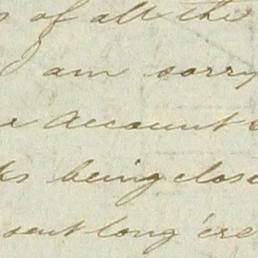 of all the
I am sorry
Account
being close
sent long 'ere